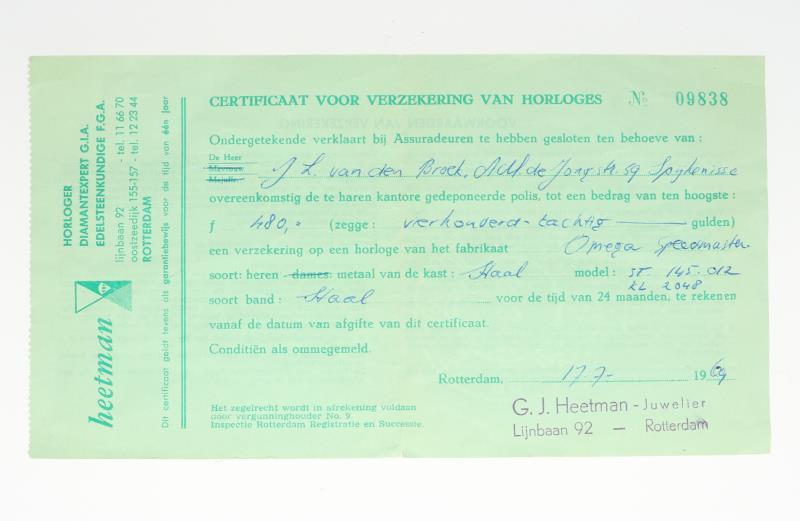 HORLOGER
DIAMANTEXPERT G.I.A.
EDELSTEENKUNDIGE F.G.A.
lijnbaan 92 - tel. 11 66 70
oostzeedijk 155-157 - tel. 12 23 44
ROTTERDAM
heetman
Dit certificaat geldt tevens als garantiebewijs voor de tijd van één jaar
CERTIFICAAT VOOR VERZEKERING VAN HORLOGES № 09838
Ondergetekende verklaart bij Assuradeuren te hebben gesloten ten behoeve van :
De Heer
Mevrouw
Mejuffr.
J L. van den Broek, Adr. de Jongstr. 59 Spijkenisse
overeenkomstig de te haren kantore gedeponeerde polis, tot een bedrag van ten hoogste :
f 480,- (zegge : vierhonderd-tachtig gulden)
een verzekering op een horloge van het fabrikaat Omega Speedmaster
soort: heren dames: metaal van de kast : Staal model : ST. 145.012
KL 2048
soort band : Staal voor de tijd van 24 maanden, te rekenen
vanaf de datum van afgifte van dit certificaat.
Conditiën als ommegemeld.
Rotterdam, 17-7- 1969
Het zegelrecht wordt in afrekening voldaan
door vergunninghouder No. 9.
Inspectie Rotterdam Registratie en Successie.
G. J. Heetman - Juwelier
Lijnbaan 92 - Rotterdam